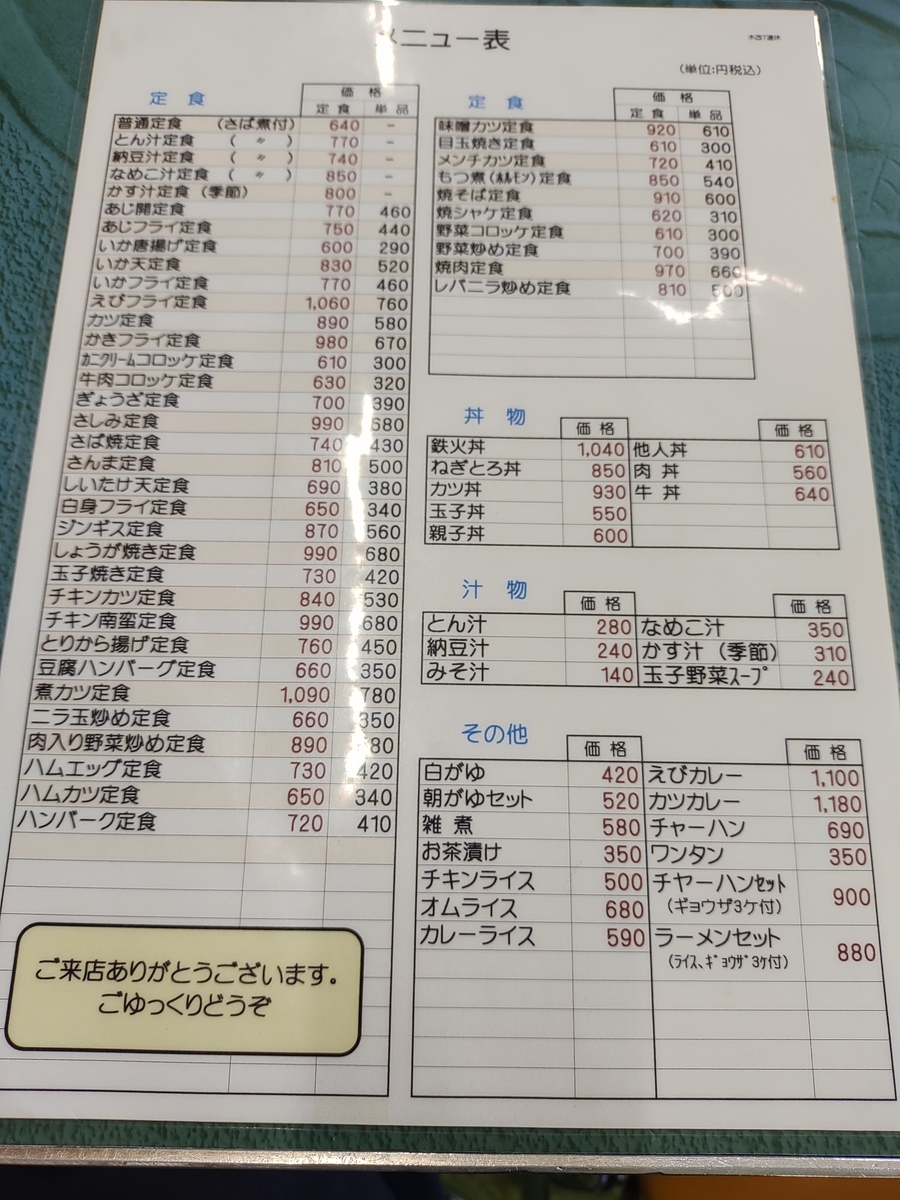 メニュー表
(単位:円税込)
定食
価格
定食 単品
普通定食 (さば煮付) 640 -
とん汁定食 ( 〃 ) 770 -
納豆汁定食 ( 〃 ) 740 -
なめこ汁定食 ( 〃 ) 850 -
かす汁定食 (季節) 800 -
あじ開定食 770 460
あじフライ定食 750 440
いか唐揚げ定食 600 290
いか天定食 830 520
いかフライ定食 770 460
えびフライ定食 1,060 760
カツ定食 890 580
かきフライ定食 980 670
カニクリームコロッケ定食 610 300
牛肉コロッケ定食 630 320
ぎょうざ定食 700 390
さしみ定食 990 680
さば焼定食 740 430
さんま定食 810 500
しいたけ天定食 690 380
白身フライ定食 650 340
ジンギス定食 870 560
しょうが焼き定食 990 680
玉子焼き定食 730 420
チキンカツ定食 840 530
チキン南蛮定食 990 680
とりから揚げ定食 760 450
豆腐ハンバーグ定食 660 350
煮カツ定食 1,090 780
ニラ玉炒め定食 660 350
肉入り野菜炒め定食 890 80
ハムエッグ定食 730 420
ハムカツ定食 650 340
ハンバーク定食 720 410
ご来店ありがとうございます。
ごゆっくりどうぞ
定食
価格
定食 単品
味噌カツ定食 920 610
目玉焼き定食 610 300
メンチカツ定食 720 410
もつ煮(ホルモン)定食 850 540
焼そば定食 910 600
焼シャケ定食 620 310
野菜コロッケ定食 610 300
野菜炒め定食 700 390
焼肉定食 970 660
レバニラ炒め定食 810 500
丼物
価格 価格
鉄火丼 1,040 他人丼 610
ねぎとろ丼 850 肉丼 560
カツ丼 930 牛丼 640
玉子丼 550
親子丼 600
汁物
価格 価格
とん汁 280 なめこ汁 350
納豆汁 240 かす汁 (季節) 310
みそ汁 140 玉子野菜スープ 240
その他
価格 価格
白がゆ 420 えびカレー 1,100
朝がゆセット 520 カツカレー 1,180
雑煮 580 チャーハン 690
お茶漬け 350 ワンタン 350
チキンライス 500 チヤーハンセット 900
(ギョウザ3ケ付)
オムライス 680
カレーライス 590 ラーメンセット 880
(ライス、ギョウザ3ケ付)